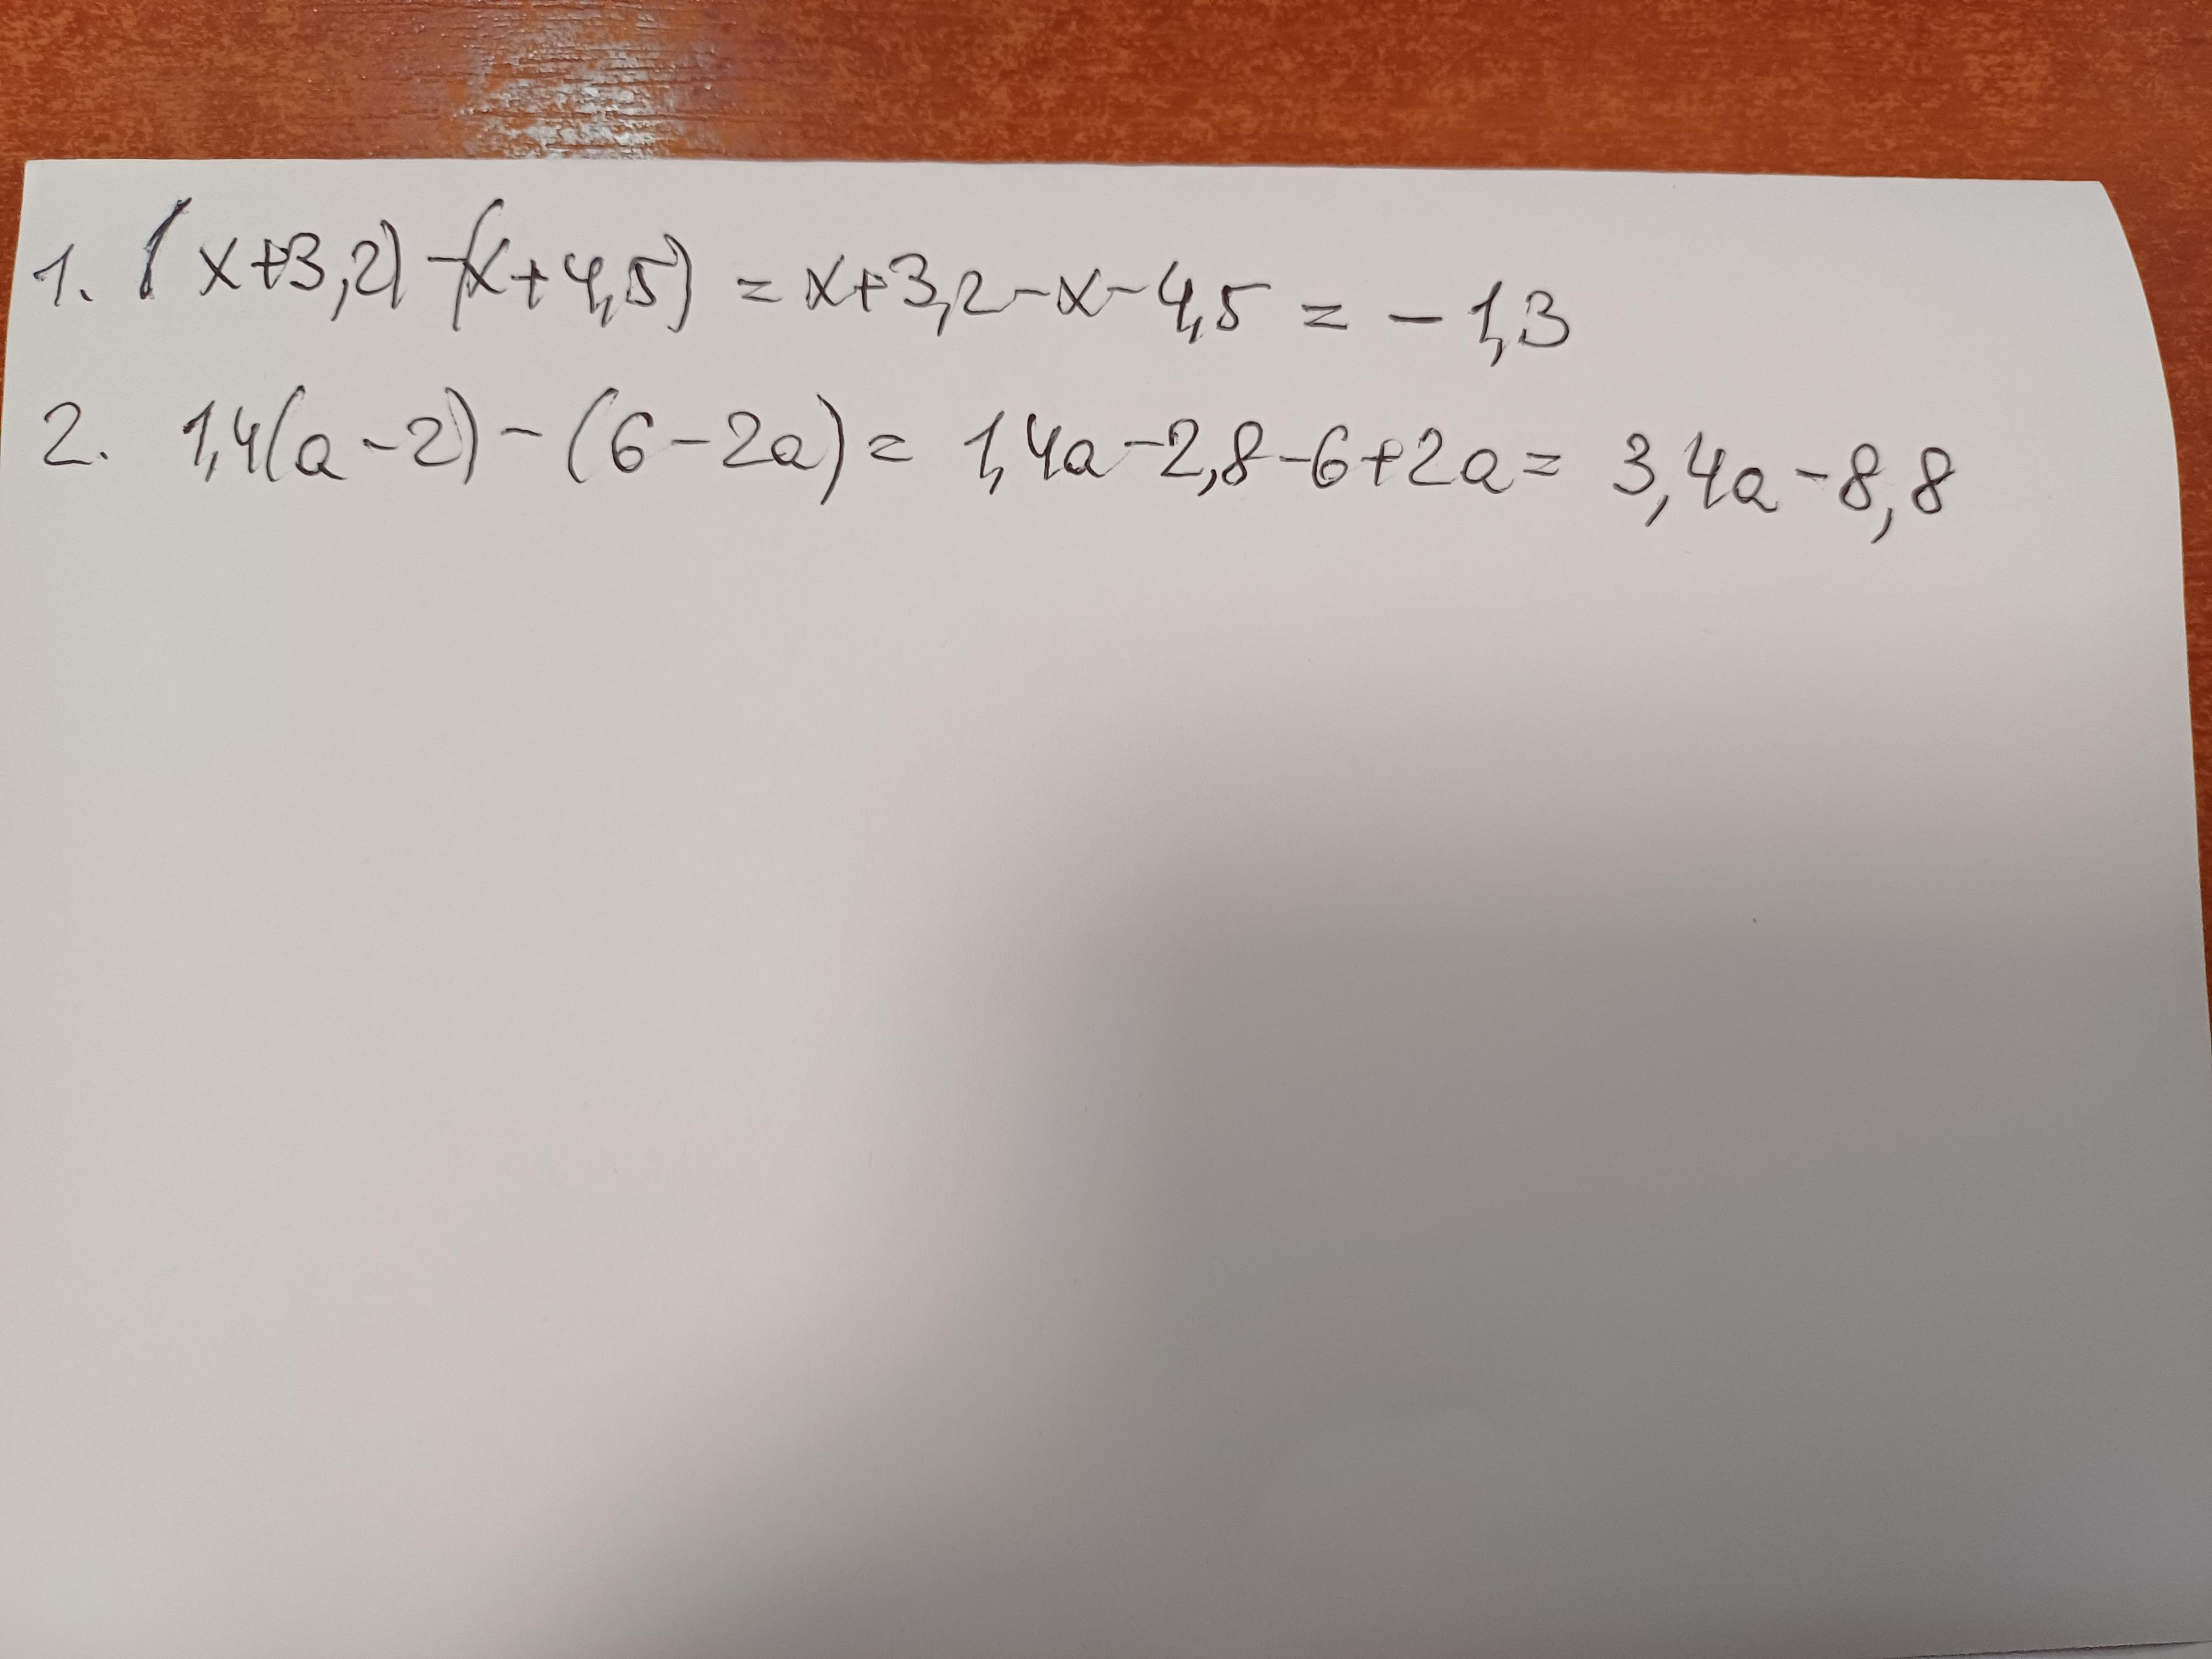 1. (x+3,2)-(x+4,5) = x+3,2-x-4,5 = -1,3
2. 1,4(a-2)-(6-2a)= 1,4a-2,8-6+2a= 3,4a-8,8